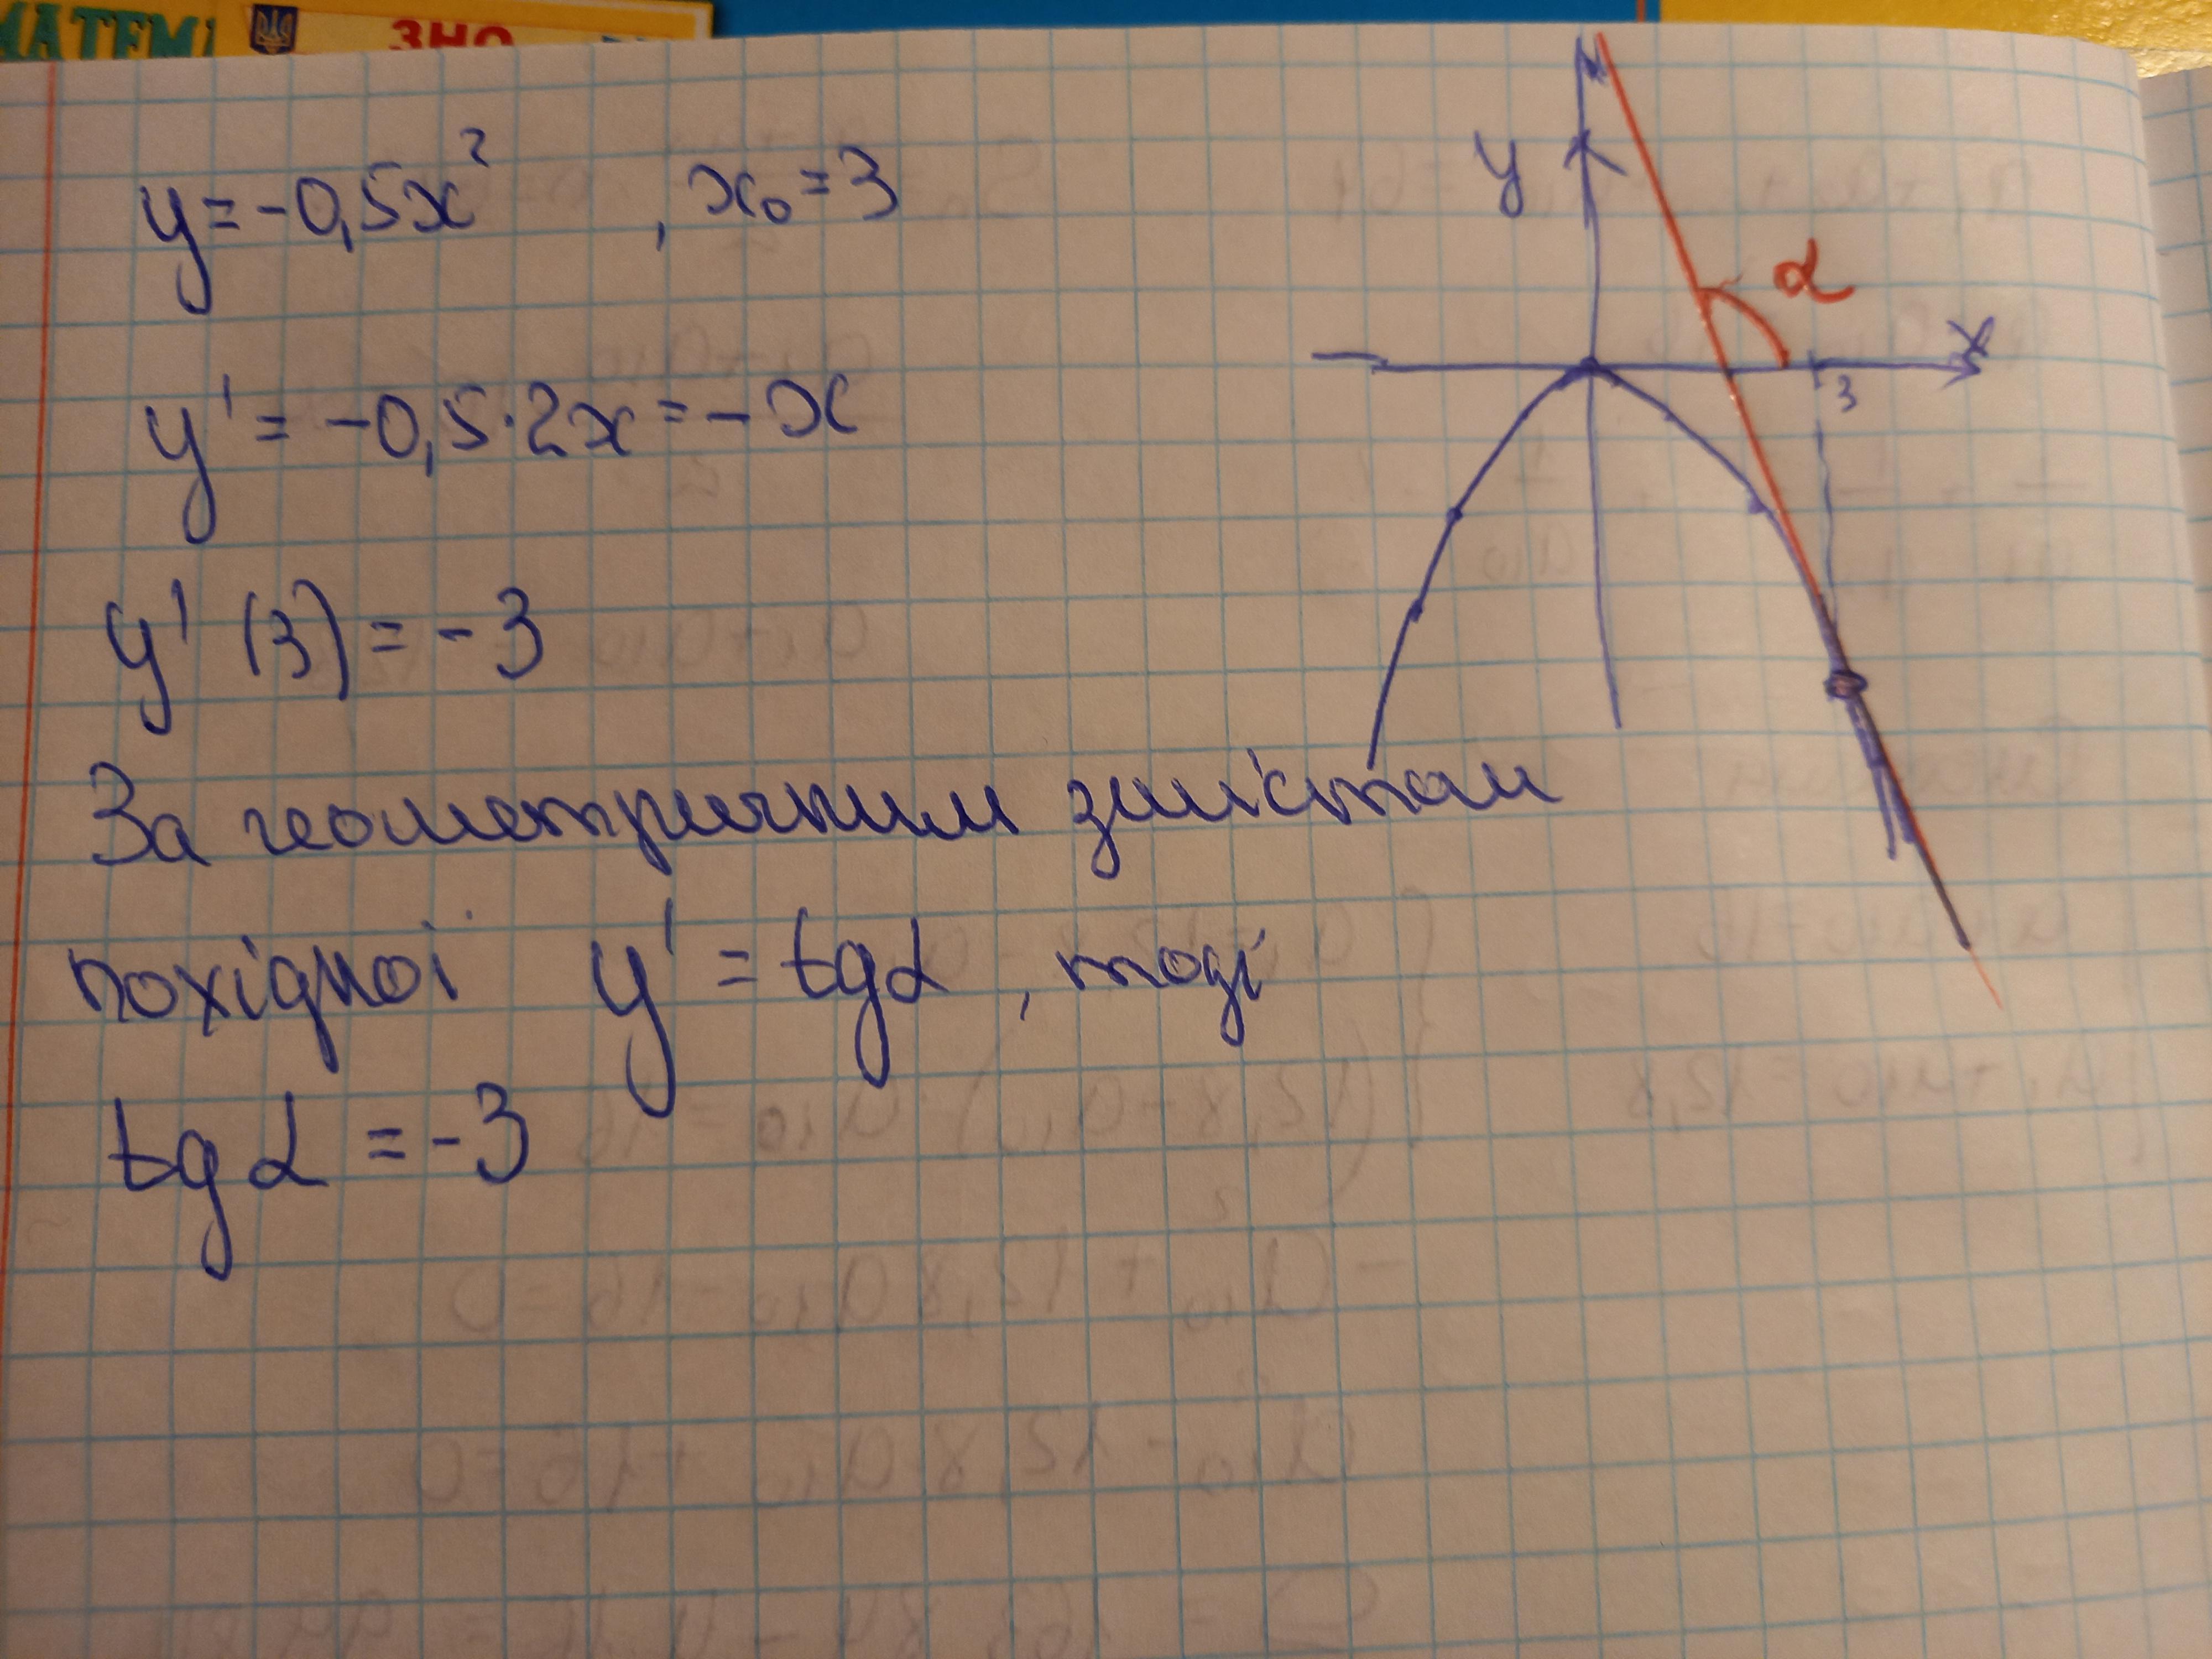 МАТЕМ
ЗНО
y = -0,5x² , x₀ = 3
y' = -0,5·2x = -x
y'(3) = -3
За геометричним змістом
похідної y' = tgα , тоді
tgα = -3
y
α
x
3